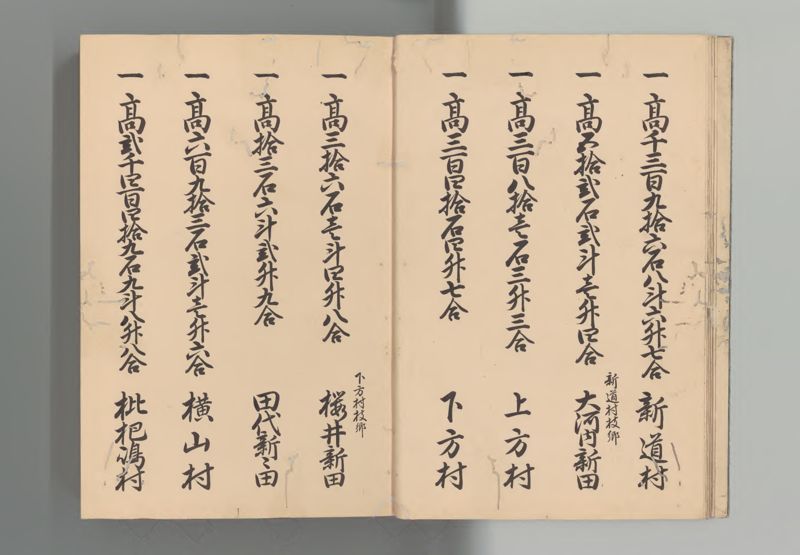 一 高千三百九拾六石八斗六升七合 新道村
一 高五拾弐石弐斗壱升四合 新道村枝郷 大河内新田
一 高三百八拾壱石三升三合 上方村
一 高三百四拾石四升七合 下方村
一 高三拾六石壱斗四升八合 下方村枝郷 桜井新田
一 高拾三石六斗弐升九合 田代新田
一 高六百九拾三石弐斗壱升六合 横山村
一 高弐千四百四拾九石九斗八升八合 枇杷嶋村